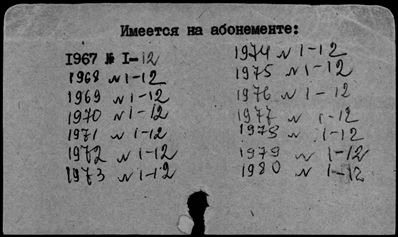 Имеется на абонементе:
1967 № I-12
1968 N 1-12
1969 N 1-12
1970 N 1-12
1971 N 1-12
1972 N 1-12
1973 N 1-12
1974 N 1-12
1975 N 1-12
1976 N 1-12
1977 N 1-12
1978 N 1-12
1979 N 1-12
1980 N 1-12